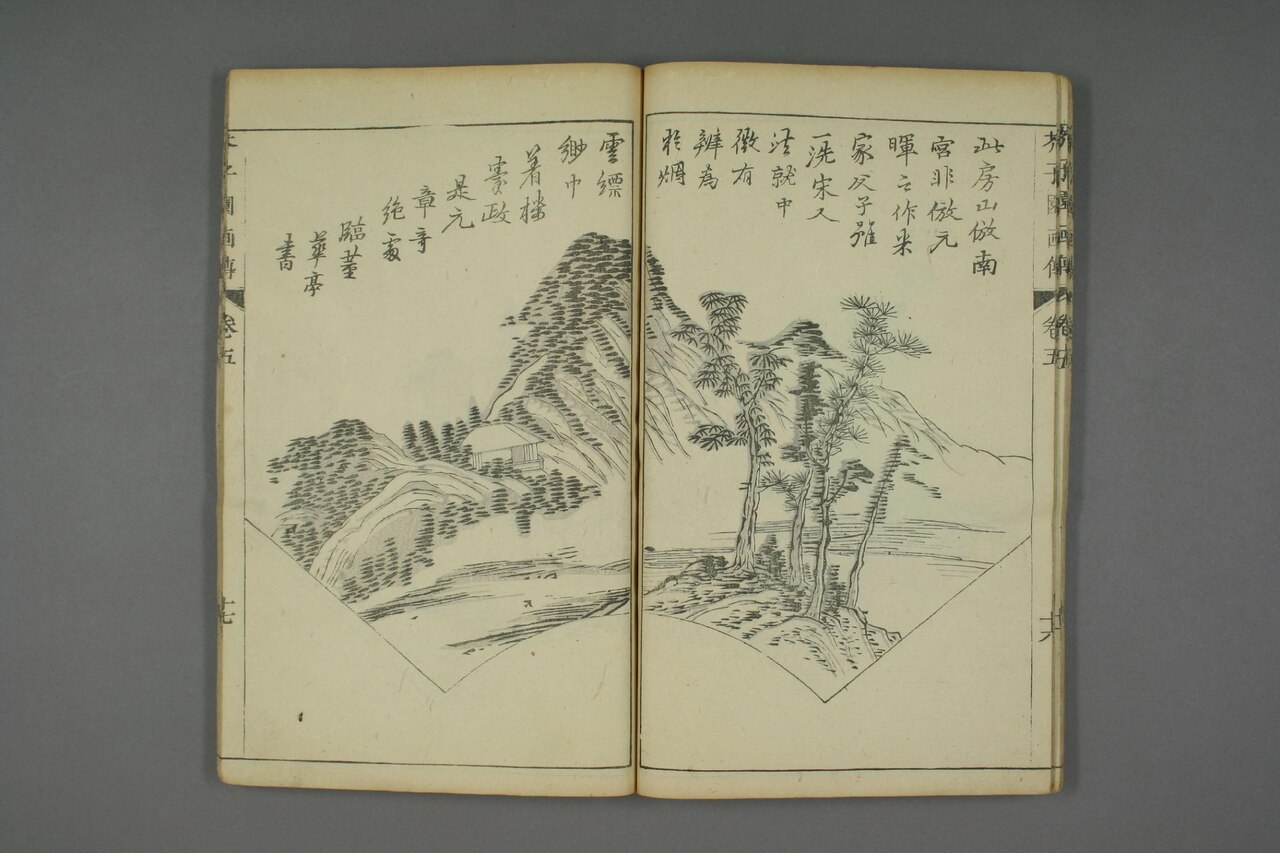 芥子園画傳
卷五
十六
此房山倣南
宮非倣元
暉之作米
家父子雖
一洗宋人
法就中
微有
辨為
於烟
雲縹
緲中
着樓
臺政
是元
章奇
絶處
臨董
華亭
書
子園画傳
卷五
十七